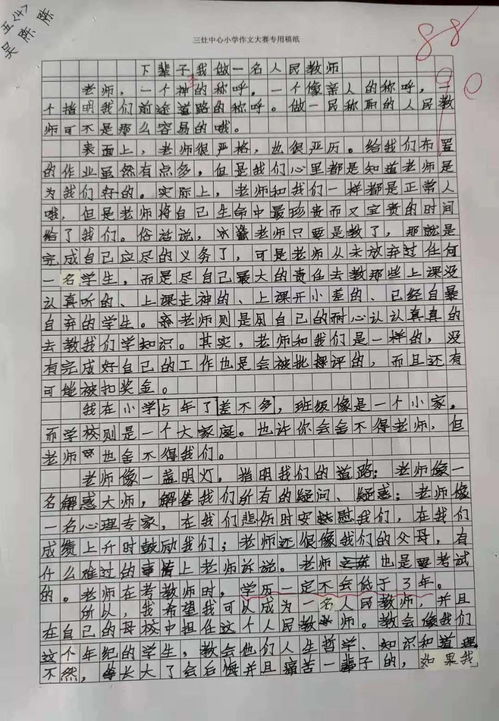 五(4)
吴陈陈
三灶中心小学作文大赛专用稿纸
88
90
下辈子我做一名人民教师
老师,一个神的称呼。一个像亲人的称呼,
个指明我们前途道路的称呼。做一民称职的人民教
师可不是那么容易的哦。
表面上,老师很严格,也很严历。给我们布置
的作业虽然有点多,但是我们心里都是知道老师是
为我们好的。实际上,老师和我们一样都是正常人
哦,但是老师将自己生命中最珍贵而又宝贵的时间
给了我们。俗话说,老师只要是教了,那就是
完成自己应尽的义务了,可是老师从未放弃过任何
一名学生,而是尽自己最大的责任去教那些上课没
认真听的、上课走神的、上课开小差的、已经自暴
自弃的学生。老师则是用自己的耐心认认真真的
去教我们学知识。其实,老师和我们是一样的,没
有完成好自己的工作也是会被批评的,而且还有
可能被扣奖金。
我在小学5年了差不多,班级像是一个小家。
而学校则是一个大家庭。也许你会舍不得老师,但
老师也会不得我们。
老师像一盏明灯。指明我们的道路;老师像一
名解惑大师,解答我们所有的疑问、疑惑;老师像
一名心理专家,在我们悲伤时安慰我们,在我们
成绩上升时鼓励我们;老师还很像我们的父母,有
什么难过的事情上老师诉说。老师也是要考试
的。老师在考教师时,学历一定不会低于3年。
所以,我希望我可以成为一名人民教师,并且
在自己的母校中担任这个人民教师。教会像我们
这个年纪的学生,教会他们人生哲学、知识和道理
不然,长大了会后悔并且痛苦一辈子的,如果我